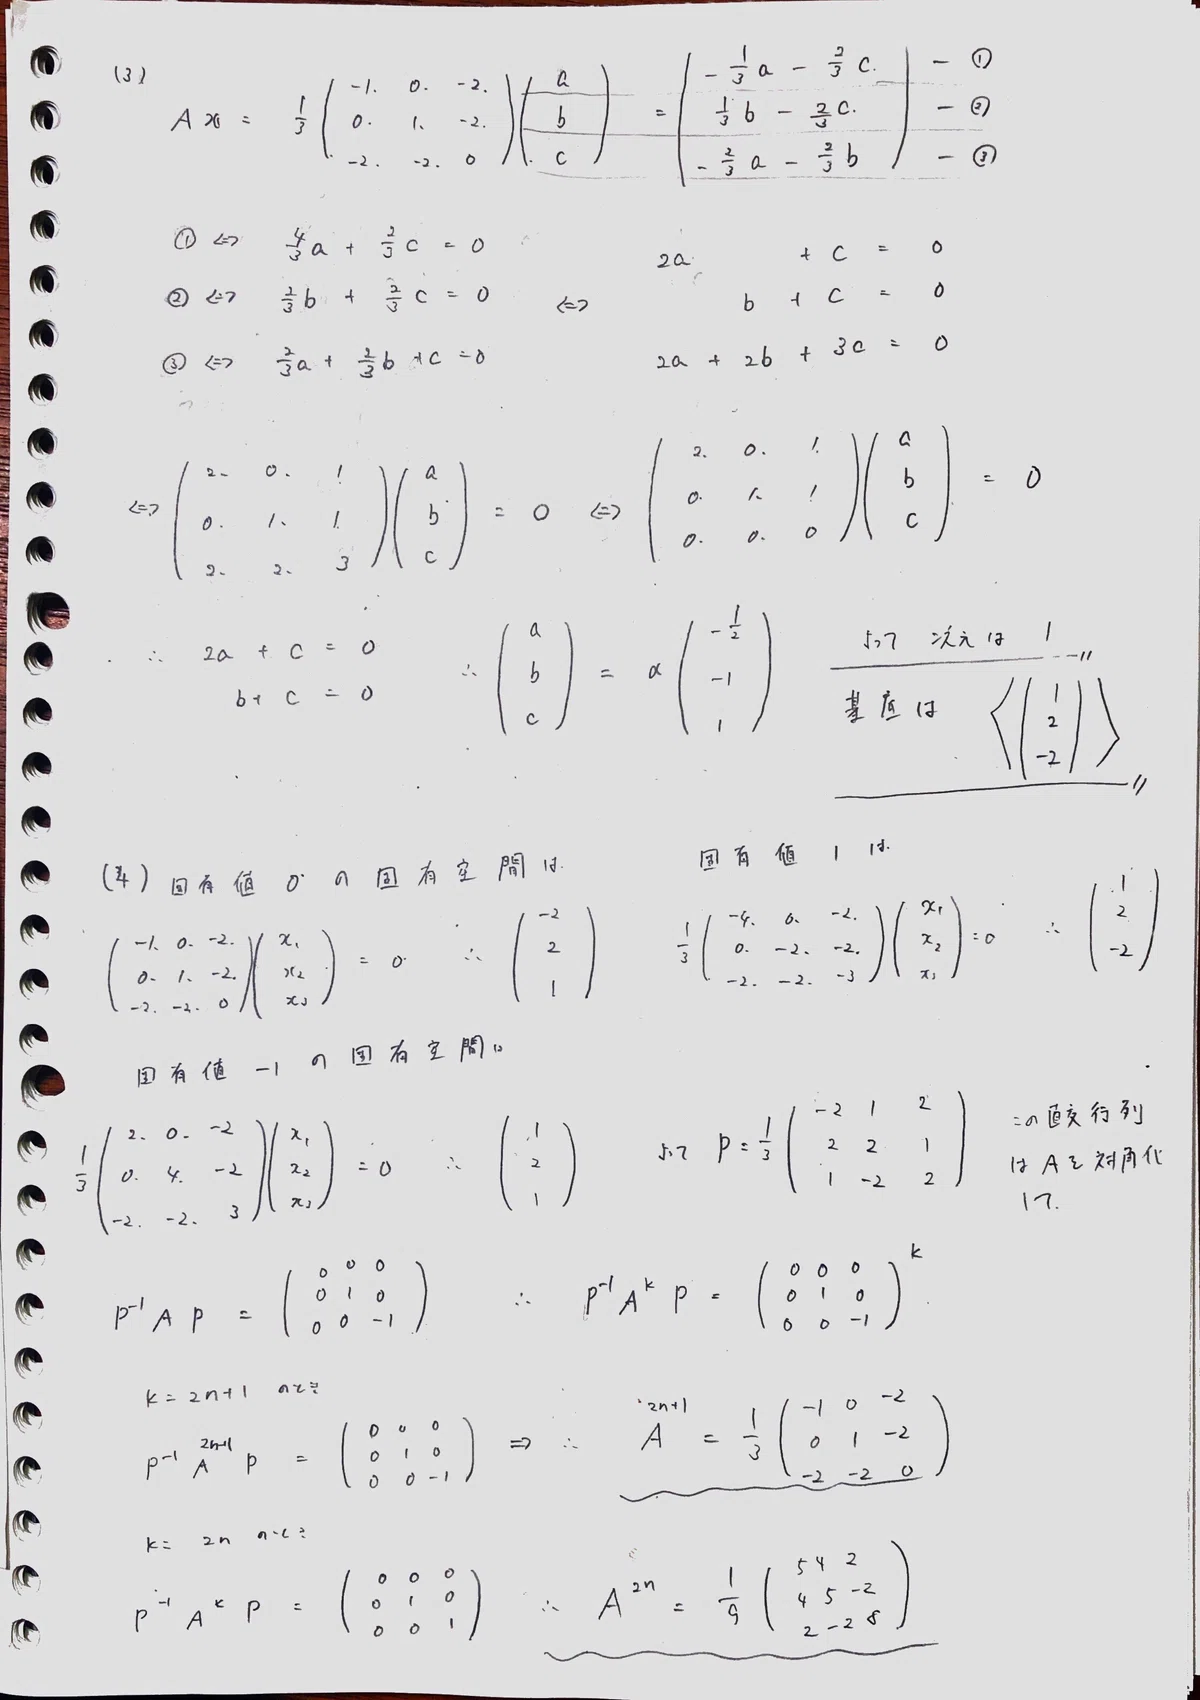 (3)
Ax = 1/3 ( -1. 0. -2. / 0. 1. -2. / -2. -2. 0 ) ( a / b / c ) = ( -1/3 a - 2/3 c. / 1/3 b - 2/3 c. / -2/3 a - 2/3 b ) - ① - ② - ③
① ⇔ 4/3 a + 2/3 c = 0
② ⇔ 2/3 b + 2/3 c = 0 ⇔
③ ⇔ 2/3 a + 2/3 b + c = 0
2a + c = 0
b + c = 0
2a + 2b + 3c = 0
⇔ ( 2. 0. 1 / 0. 1. 1. / 2. 2. 3 ) ( a / b / c ) = 0 ⇔ ( 2. 0. 1. / 0. 1. 1 / 0. 0. 0 ) ( a / b / c ) = 0
∴ 2a + c = 0
b + c = 0
∴ ( a / b / c ) = α ( -1/2 / -1 / 1 )
よって 次元は 1
基底は 〈 ( 1 / 2 / -2 ) 〉
(4) 固有値 0 の 固有空間は
( -1. 0. -2. / 0. 1. -2. / -2. -2. 0 ) ( x₁ / x₂ / x₃ ) = 0 ∴ ( -2 / 2 / 1 )
固有値 1 は
1/3 ( -4. 0. -2. / 0. -2. -2. / -2. -2. -3 ) ( x₁ / x₂ / x₃ ) = 0 ∴ ( 1 / 2 / -2 )
固有値 -1 の 固有空間は
1/3 ( 2. 0. -2 / 0. 4. -2 / -2. -2. 3 ) ( x₁ / x₂ / x₃ ) = 0 ∴ ( 1 / 2 / 1 )
よって P = 1/3 ( -2 1 2 / 2 2 1 / 1 -2 2 )
この直交行列
は A を 対角化
して.
P⁻¹ A P = ( 0 0 0 / 0 1 0 / 0 0 -1 ) ∴ P⁻¹ A^k P = ( 0 0 0 / 0 1 0 / 0 0 -1 )^k
k = 2n+1 のとき
P⁻¹ A^{2n+1} P = ( 0 0 0 / 0 1 0 / 0 0 -1 ) ⇒ ∴ A^{2n+1} = 1/3 ( -1 0 -2 / 0 1 -2 / -2 -2 0 )
k = 2n のとき
P⁻¹ A^k P = ( 0 0 0 / 0 1 0 / 0 0 1 ) ∴ A^{2n} = 1/9 ( 5 4 2 / 4 5 -2 / 2 -2 8 )